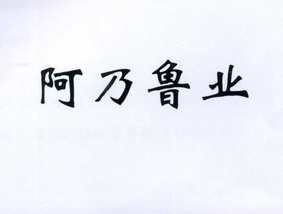 阿乃鲁业